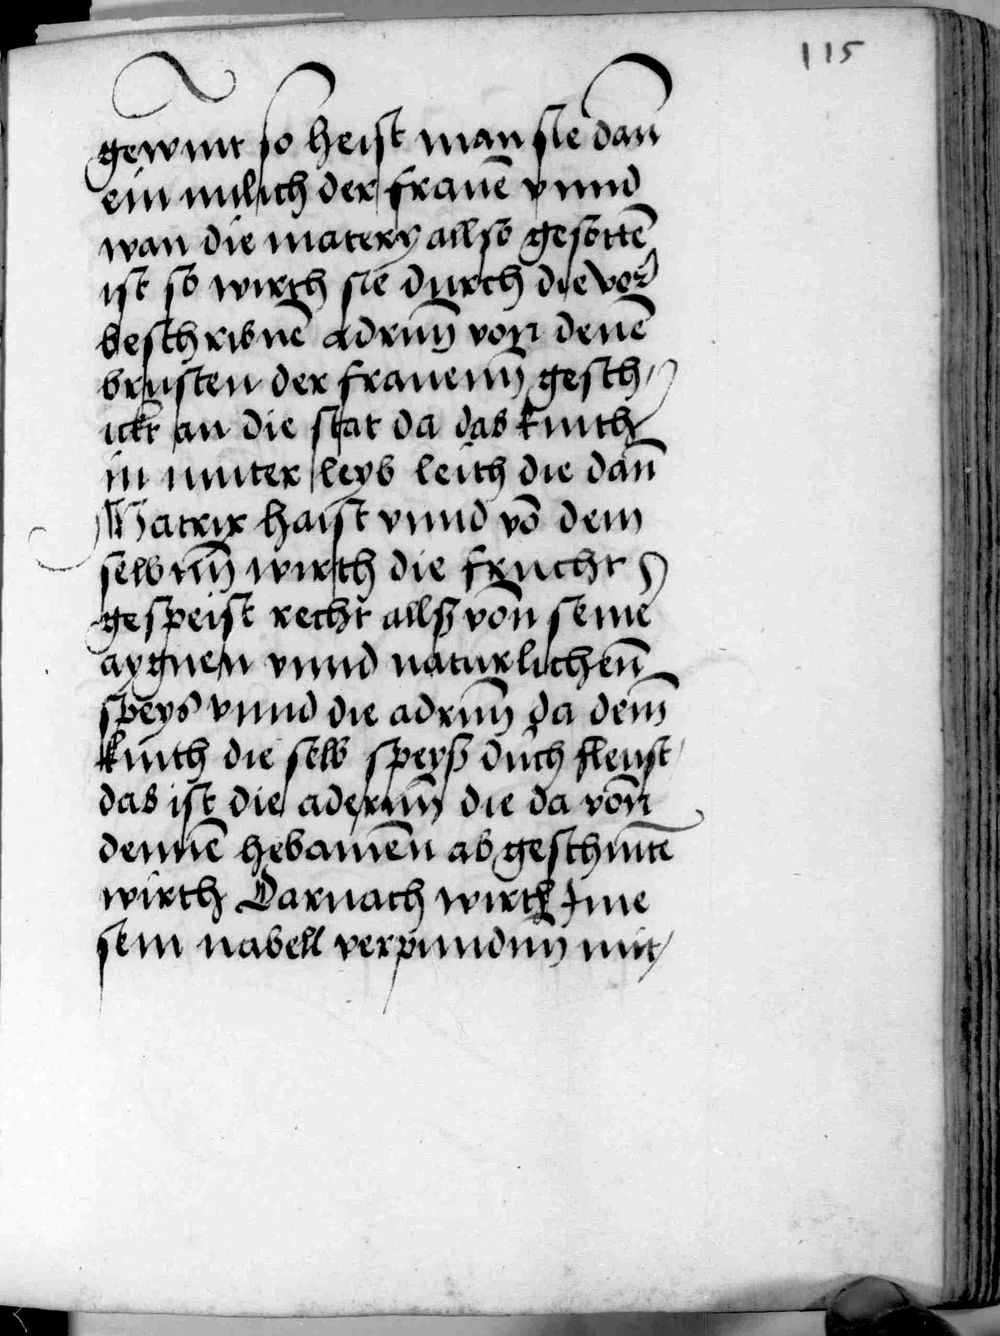 115
gewint so heist man sie dan̄
ein milich der frauē vnnd
wan die matery allso gesottē
ist so wirth sie durch die vor
beschribnē adrnn̄ von denē
brusten der frauenn̄ gesch
ickt an die stat da das kinth
in muter leyb leith die dan̄
Matrix haist vnnd vō dem
selbnn̄ wirth die frucht
gespeist recht allß von seinē
aygnen vnnd naturlichen̄
speys vnnd die adrnn̄ da dem̄
kinth die selb speyß durch fleust
das ist die adernn̄ die da von̄
dennē hebamen̄ ab geschnitē
wirth Darnach wirth Ime
sein nabell verpundnn̄ mit